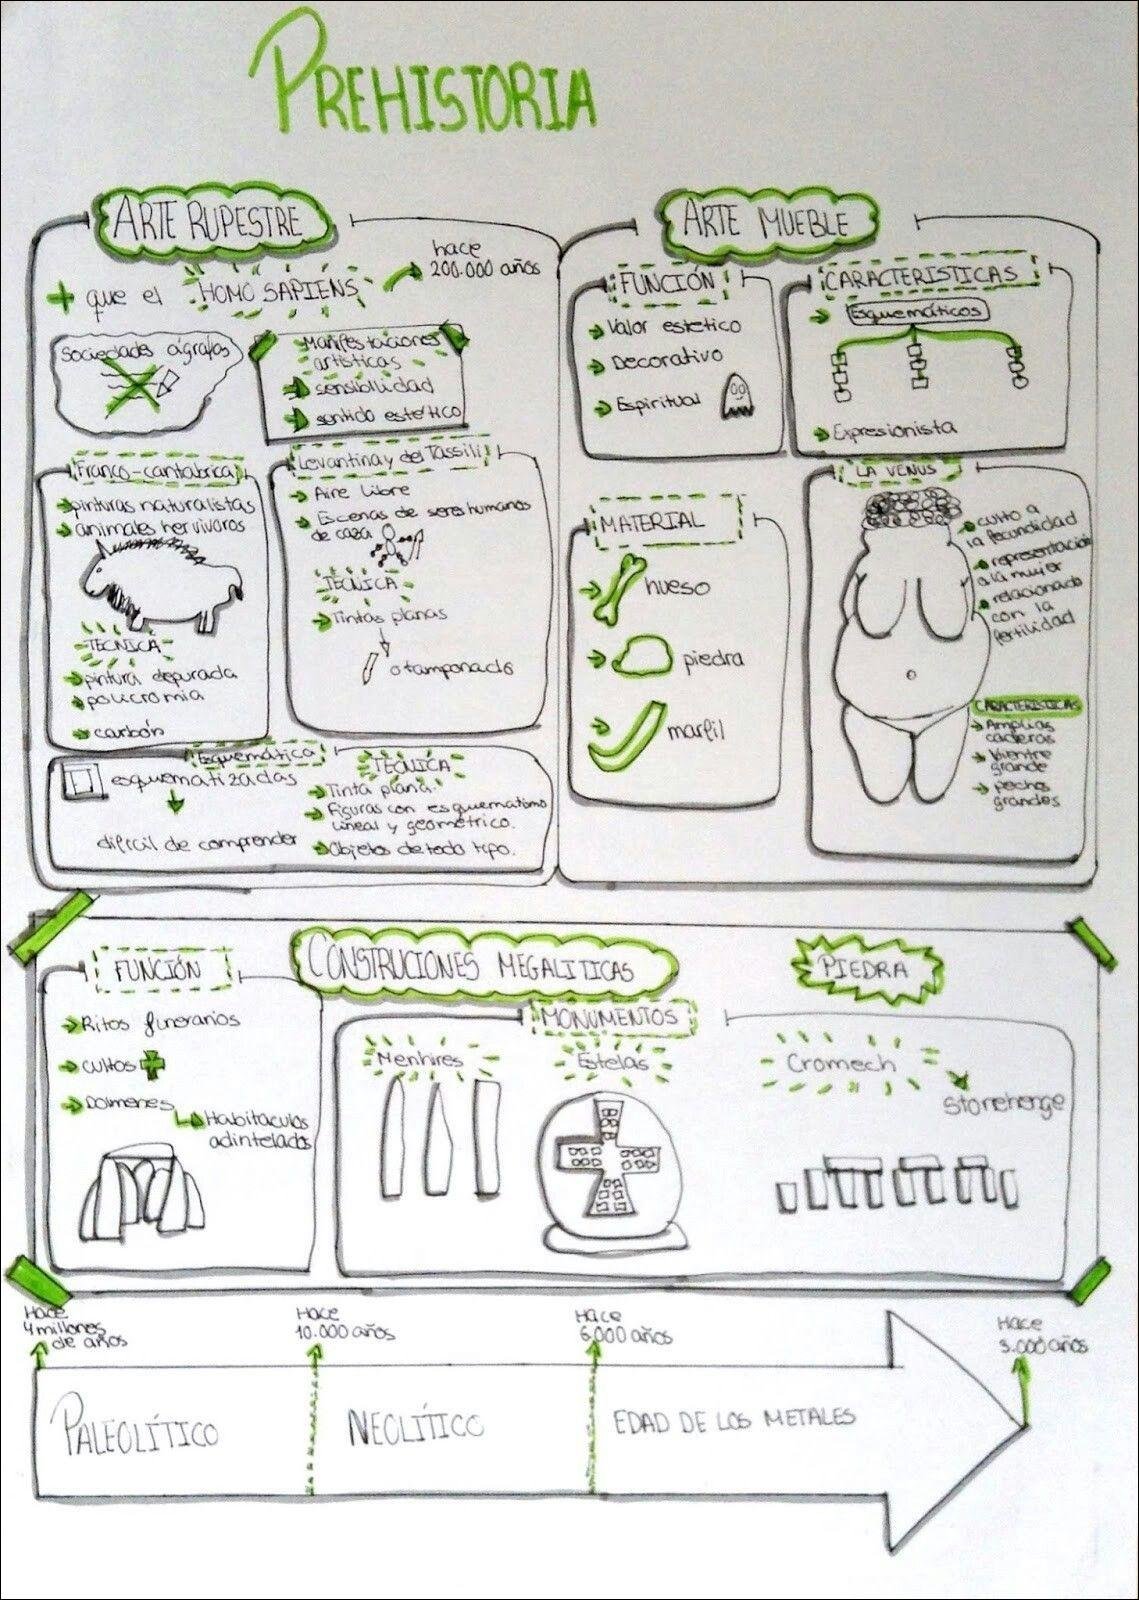 PREHISTORIA
ARTE RUPESTRE
+ que el HOMO SAPIENS
hace
200.000 años
Sociedades ágrafas
Manifestaciones
artísticas
sensibilidad
sentido estético
Franco-cantabrica
pinturas naturalistas
animales hervivoros
TECNICA
pintura depurada
policromia
carbón
Levantina y del Tassili
Aire Libre
Escenas de seres humanos
de caza
TECNICA
Tintas planas
o tamponado
Esquemática
esquematizadas
dificil de comprender
TECNICA
Tinta plana.
Figuras con esquematismo
lineal y geométrico.
Objetos de todo tipo.
ARTE MUEBLE
FUNCIÓN
Valor estetico
Decorativo
Espiritual
CARACTERISTICAS
Esquemáticos
Expresionista
MATERIAL
hueso
piedra
marfil
LA VENUS
culto a
la fecundidad
representación
a la mujer
relacionado
con la
fertilidad
CARACTERISTICAS
Amplias
caderas
Vientre
grande
pechos
grandes
CONSTRUCIONES MEGALITICAS
PIEDRA
FUNCIÓN
Ritos funerarios
cultos
Dolmenes
Habitaculos
adintelados
MONUMENTOS
Menhires
Estelas
Cromech
Stonehenge
Hace
4 millones
de años
Hace
10.000 años
Hace
6.000 años
Hace
3.000 años
PALEOLÍTICO
NEOLÍTICO
EDAD DE LOS METALES